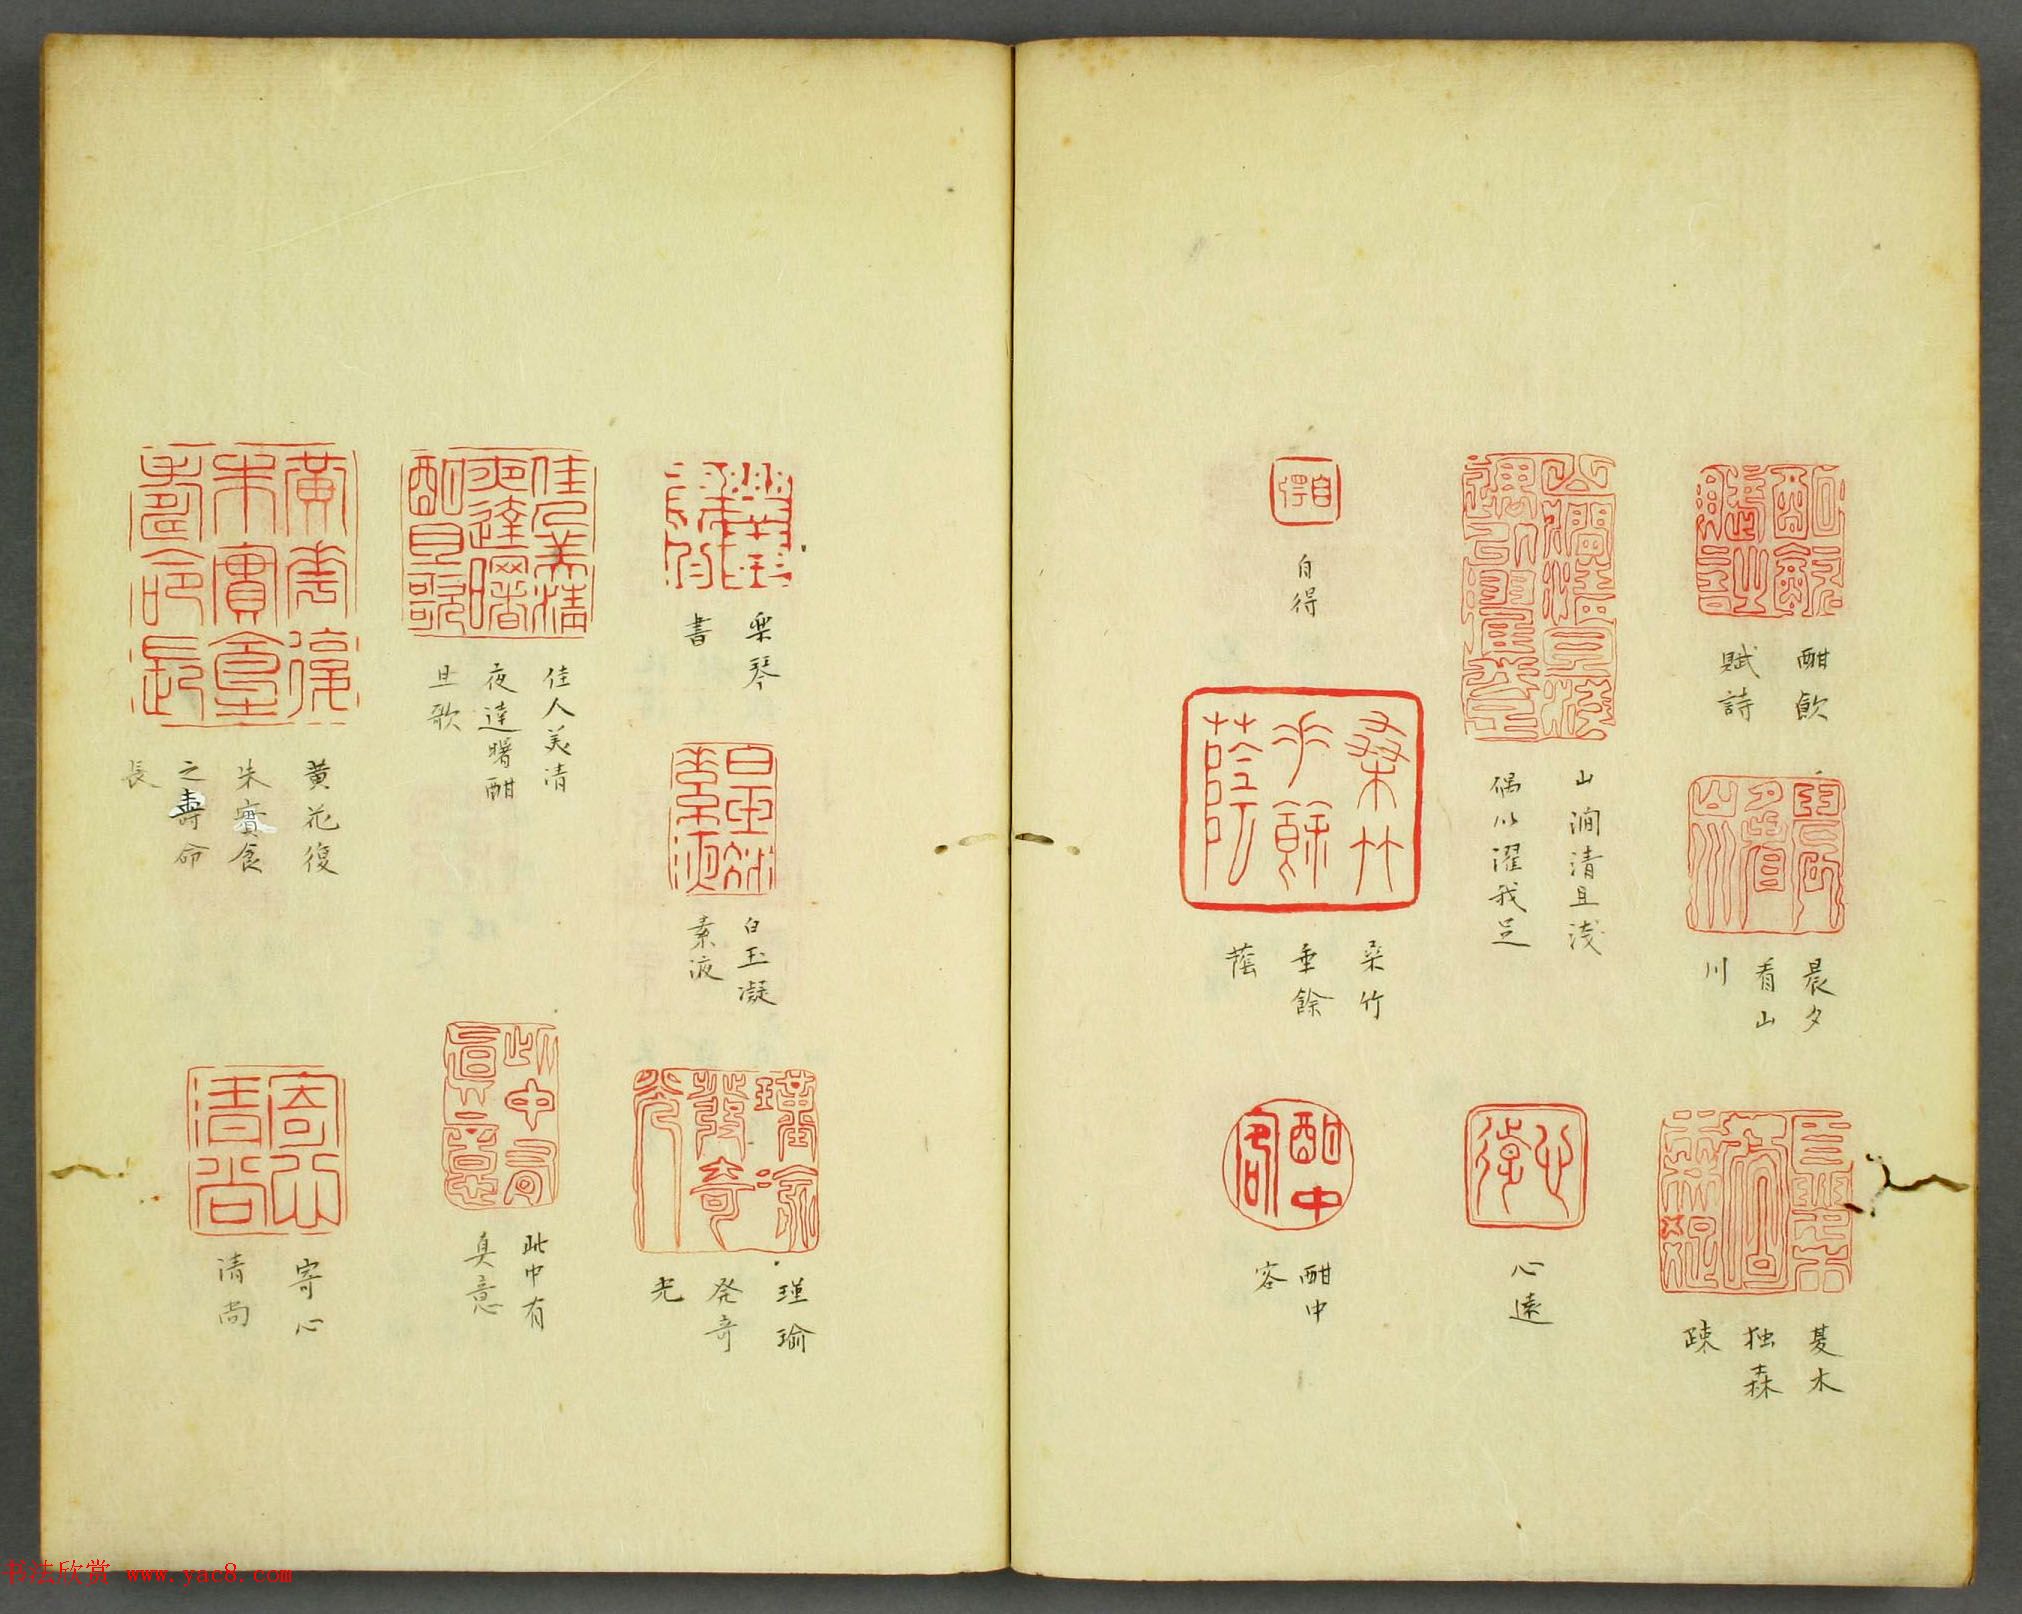 酣飲
賦詩
晨夕
看山
川
夏木
独森
疎
山澗清且浅
偶以濯我足
心遠
自得
桑竹
垂餘
蔭
酣中
客
楽琴
書
白玉凝
素液
瑾瑜
発奇
光
佳人美清
夜達曙酣
且歌
此中有
真意
黄花復
朱實食
之壽命
長
寄心
清尚
书法欣赏 www.yac8.com